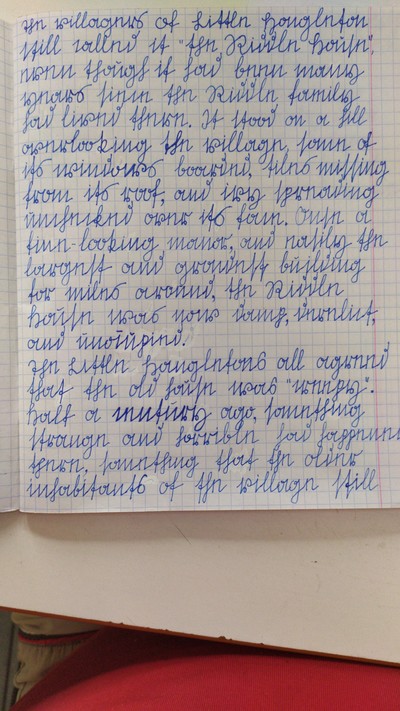 The villagers of Little Hangleton
still called it "the Riddle House",
even though it had been many
years since the Riddle family
had lived there. It stood on a hill
overlooking the village, some of
its windows boarded, tiles missing
from its roof, and ivy spreading
unchecked over its face. Once a
fine-looking manor, and easily the
largest and grandest building
for miles around, the Riddle
House was now damp, derelict,
and unoccupied.
The Little Hangletons all agreed
that the old house was "creepy".
Half a century ago, something
strange and horrible had happened
there. something that the older
inhabitants of the village still